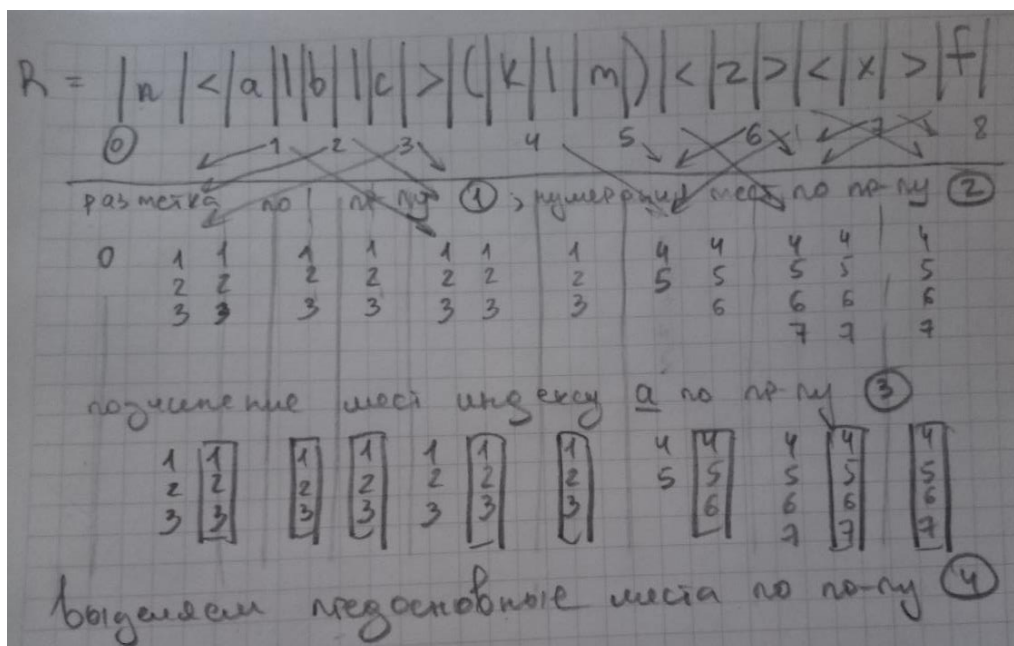 R = |n|<|a||b||c|>(|k||m)|<|z|><|x|>|f|
0 1 2 3 4 5 6 7 8
разметка по пр-пу ① ; нумерация мест по пр-пу ②
0 1 1 1 1 1 1 1 4 4 4 4 4
2 2 2 2 2 2 2 5 5 5 5 5
3 3 3 3 3 3 3 6 6 6 6
7 7 7
подчинение мест индексу a по пр-пу ③
1 1 1 1 1 1 1 4 4 4 4 4
2 2 2 2 2 2 2 5 5 5 5 5
3 3 3 3 3 3 3 6 6 6 6
7 7 7
Выделяем предосновные места по по-пу ④